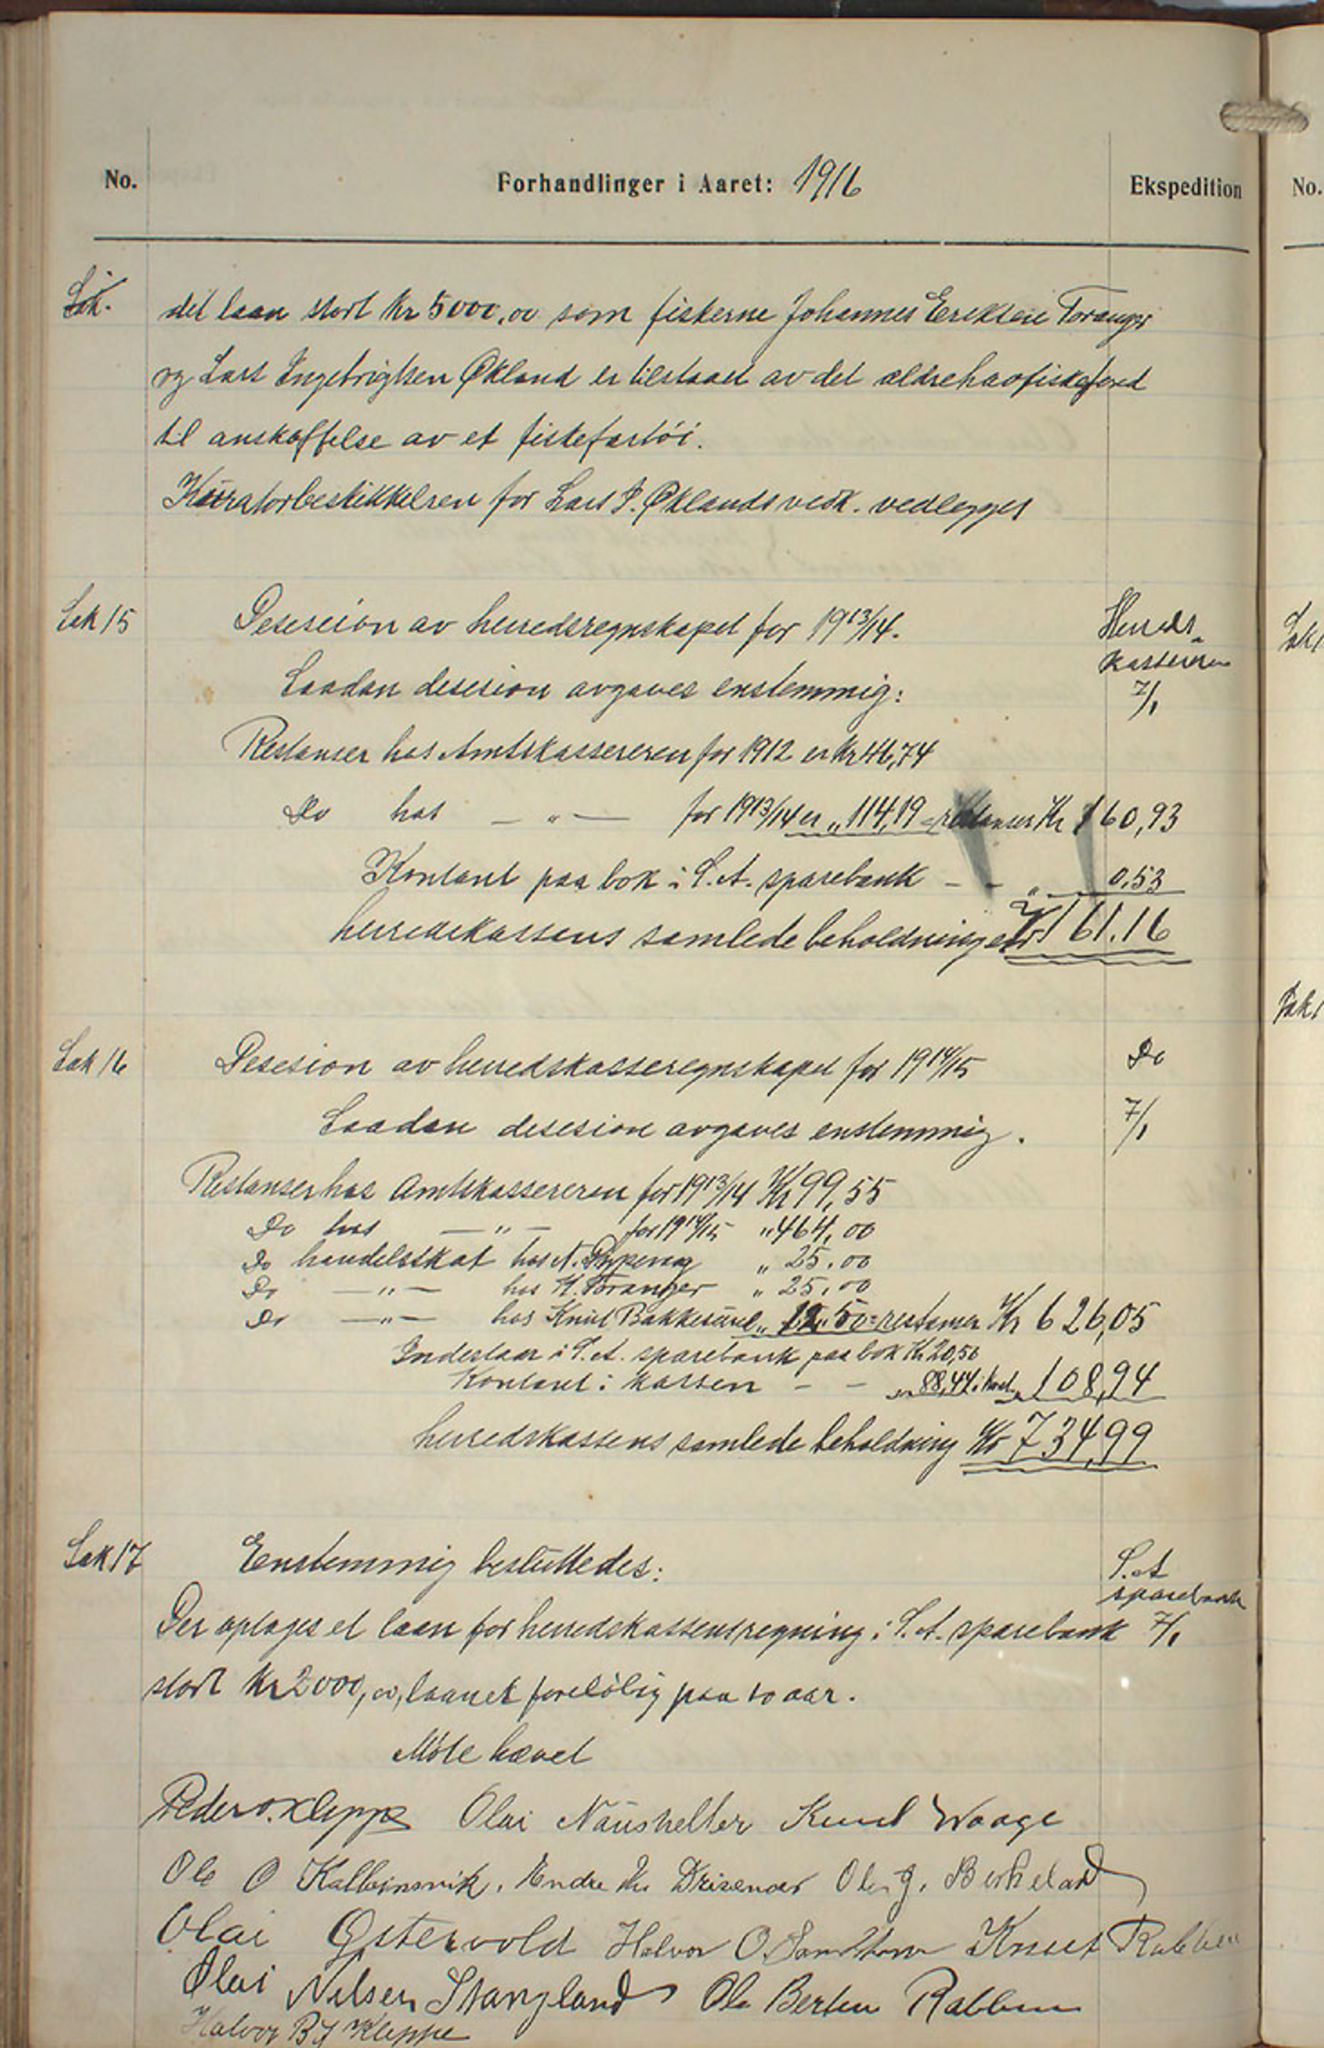 No. Forhandlinger i Aaret: 1916 Ekspedition No.
Sak. det laan stort Kr 5000,00 som fiskerne Johannes Eriksen Toranger
og Lars Ingebrigtsen Økland er tilstaaet av det ældre havfiskefond
til anskaffelse av et fiskefartöi.
Kuratorbeskikkelsen for Lars I. Øklands vedk. vedlegges
Sak 15 Desesion av herredsregnskapet for 1913/14. Herreds-
kassereren
Saadan desesion avgaves enstemmig: 7/1
Restanser hos Amtskassereren for 1912 er Kr 46,74
Do hos — " — for 1913/14 er " 114,19 = restanser Kr 160,93
Kontant paa bok i S.A. sparebank - - " 0,53
herredskassens samlede beholdning er Kr 161.16
Sak 16 Desesion av herredskasseregnskapet for 1914/15 Do
Saadan desesion avgaves enstemmig. 7/1
Restanser hos Amtskassereren for 1913/14 Kr 99,55
Do hos — " — for 1914/15 " 464,00
Do handelsskat hos N. " 25,00
Do — " — hos H. Toranger " 25,00
Do — " — hos Knut Bakkesund " 12,50 = restanser Kr 626,05
Indestaar i S.A. sparebank paa bok Kr 20,50
Kontant i kassen - - " 88,44 108,94
herredskassens samlede beholdning Kr 734,99
Sak 17 Enstemmig besluttedes: S.A
sparebank
Der optages et laan for herredskassens regning i S.A. sparebank 7/1
stort Kr 2000,00, laanet forelöbig paa 10 aar.
Möte hævet
Peder O. Kleppe Olai Naustheller Knut Waage
Ole O Kolbeinsvik. Endre Drivenes Ole J. Berkeland
Olai Østervold Halvor O. Sandtorv Knut Rabben
Olai Nilsen Stangeland Ole Berten Rabben
Halvor BJ Kleppe